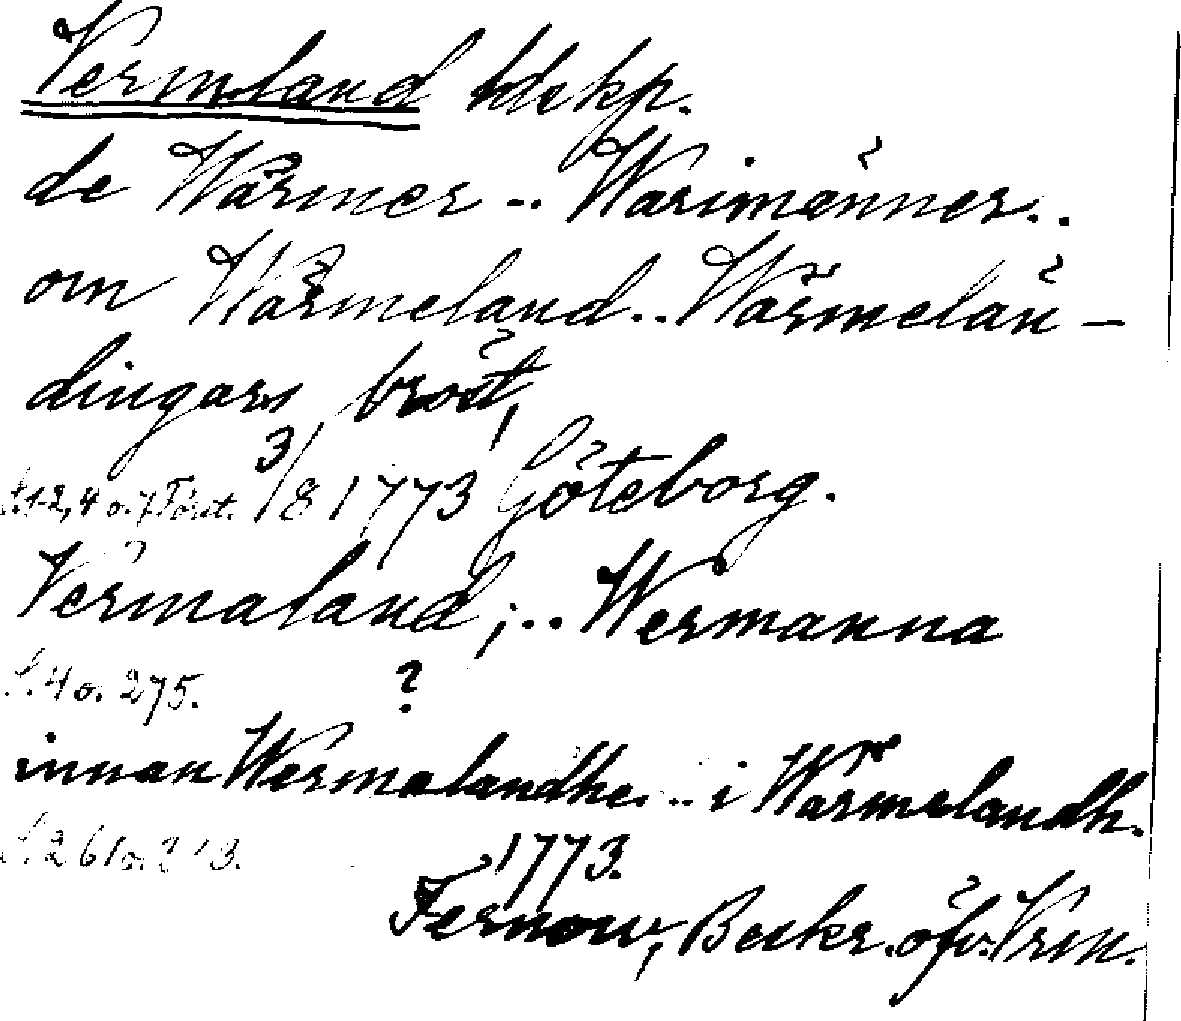 Vermland ldskp.
de Wärmer .. Warimänner..
om Wärmeland.. Wärmelän-
dingars bröst,
S. 1-2, 4 o. 7 Föret. 3/8 1773 Göteborg.
Vermaland; .. Wermanna
S. 4 o. 275. ?
innan Wermalandhe. .. i Wärmelandh.
S. 261 o.
1773.
Fernow, Beskr. öfv. Vrm.